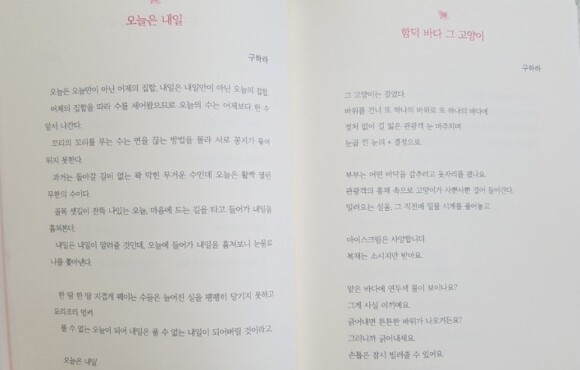 오늘은 내일
구하라
오늘은 오늘만이 아닌 어제의 집합, 내일은 내일만이 아닌 오늘의 집합
어제의 집합을 따라 수를 세어왔으므로 오늘의 수는 어제보다 한 수
앞서 나간다.
꼬리의 꼬리를 무는 수는 연을 끊는 방법을 몰라 서로 꽁지가 붙어
뒤지 못한다.
과거는 돌아갈 길이 없는 꽉 막힌 무거운 수인데 오늘은 활짝 열린
무한의 수이다.
골목 샛길이 잔뜩 나있는 오늘, 마음에 드는 길을 타고 들어가 내일을
훔쳐본다.
내일은 내일이 알려줄 것인데, 오늘에 들어가 내일을 훔쳐보니 눈물로
나를 쫓아낸다.
한 땀 한 땀 지겹게 꿰이는 수들은 늘어진 실을 팽팽히 당기지 못하고
요리조리 엉켜
풀 수 없는 오늘이 되어 내일은 풀 수 없는 내일이 되어버릴 것이라고
오늘은 내일
함덕 바다 그 고양이
구하라
그 고양이는 걸었다.
바위를 건너 또 하나의 바위로 또 하나의 바다에
정처 없이 길 잃은 관광객 눈 마주치며
눈곱 낀 눈의 + 결정으로.
부부는 어떤 바닥을 감추려고 돗자리를 폈나요.
관광객의 홍채 속으로 고양이가 사뿐사뿐 걸어 들어간다.
밀려오는 실움, 그 직전에 밀물 시계를 풀어놓고
아이스크림은 사양합니다.
복채는 소시지만 받아요.
맑은 바다에 연두색 물이 보이나요?
그게 사실 이끼예요.
긁어내면 튼튼한 바위가 나오거든요?
그러니까 긁어내세요.
손톱은 잠시 빌려줄 수 있어요.